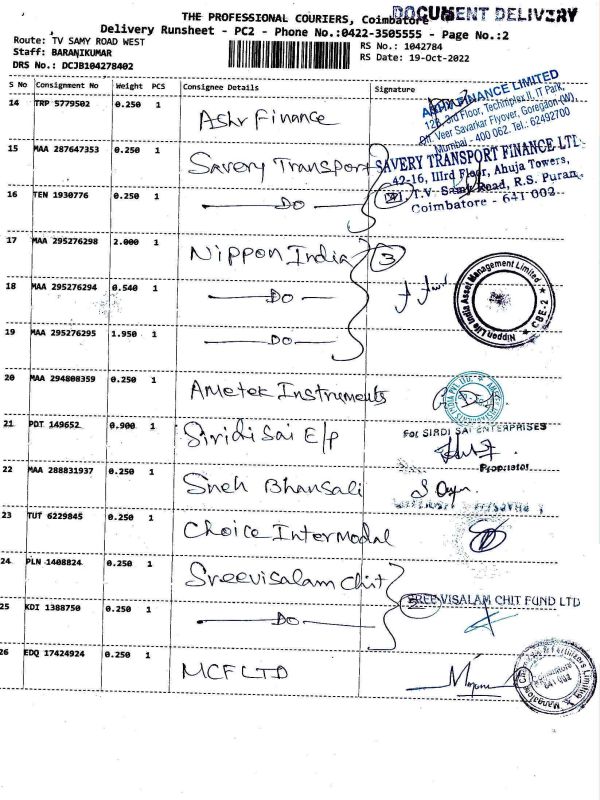 THE PROFESSIONAL COURIERS, Coimbatore
DOCUMENT DELIVERY
Delivery Runsheet - PC2 - Phone No.:0422-3505555 - Page No.:2
Route: TV SAMY ROAD WEST
RS No.: 1042784
Staff: BARANIKUMAR
RS Date: 19-Oct-2022
DRS No.: DCJB104278402
S No Consignment No Weight PCS Consignee Details Signature
14 TRP 5779502 0.250 1 Ashv Finance
ASHV FINANCE LIMITED
12B, 3rd Floor, Techniplex II, IT Park,
Off. Veer Savarkar Flyover, Goregaon (W)
Mumbai - 400 062. Tel.: 62492700
15 MAA 287647353 0.250 1 Savery Transport
SAVERY TRANSPORT FINANCE LTD.
42-16, IIIrd Floor, Ahuja Towers,
T.V. Samy Road, R.S. Puram,
Coimbatore - 641 002.
16 TEN 1930776 0.250 1 DO
17 MAA 295276298 2.000 1 Nippon India 3
18 MAA 295276294 0.540 1 DO
Nippon Life India Asset Management Limited
CBE-2
19 MAA 295276295 1.950 1 DO
20 MAA 294808359 0.250 1 Ametek Instruments
21 PDT 149652 0.900 1 Siridi Sai E/p
For SIRDI SAI ENTERPRISES
Proprietor
22 MAA 288831937 0.250 1 Sneh Bhansali
23 TUT 6229845 0.250 1 Choice Intermodal
24 PLN 1408824 0.250 1 Sreevisalam Chit
SREE VISALAM CHIT FUND LTD
25 KDI 1388750 0.250 1 DO 2
26 EDQ 17424924 0.250 1 MCF LTD
Mangalore Chemicals & Fertilizers Limited
Coimbatore
641 002